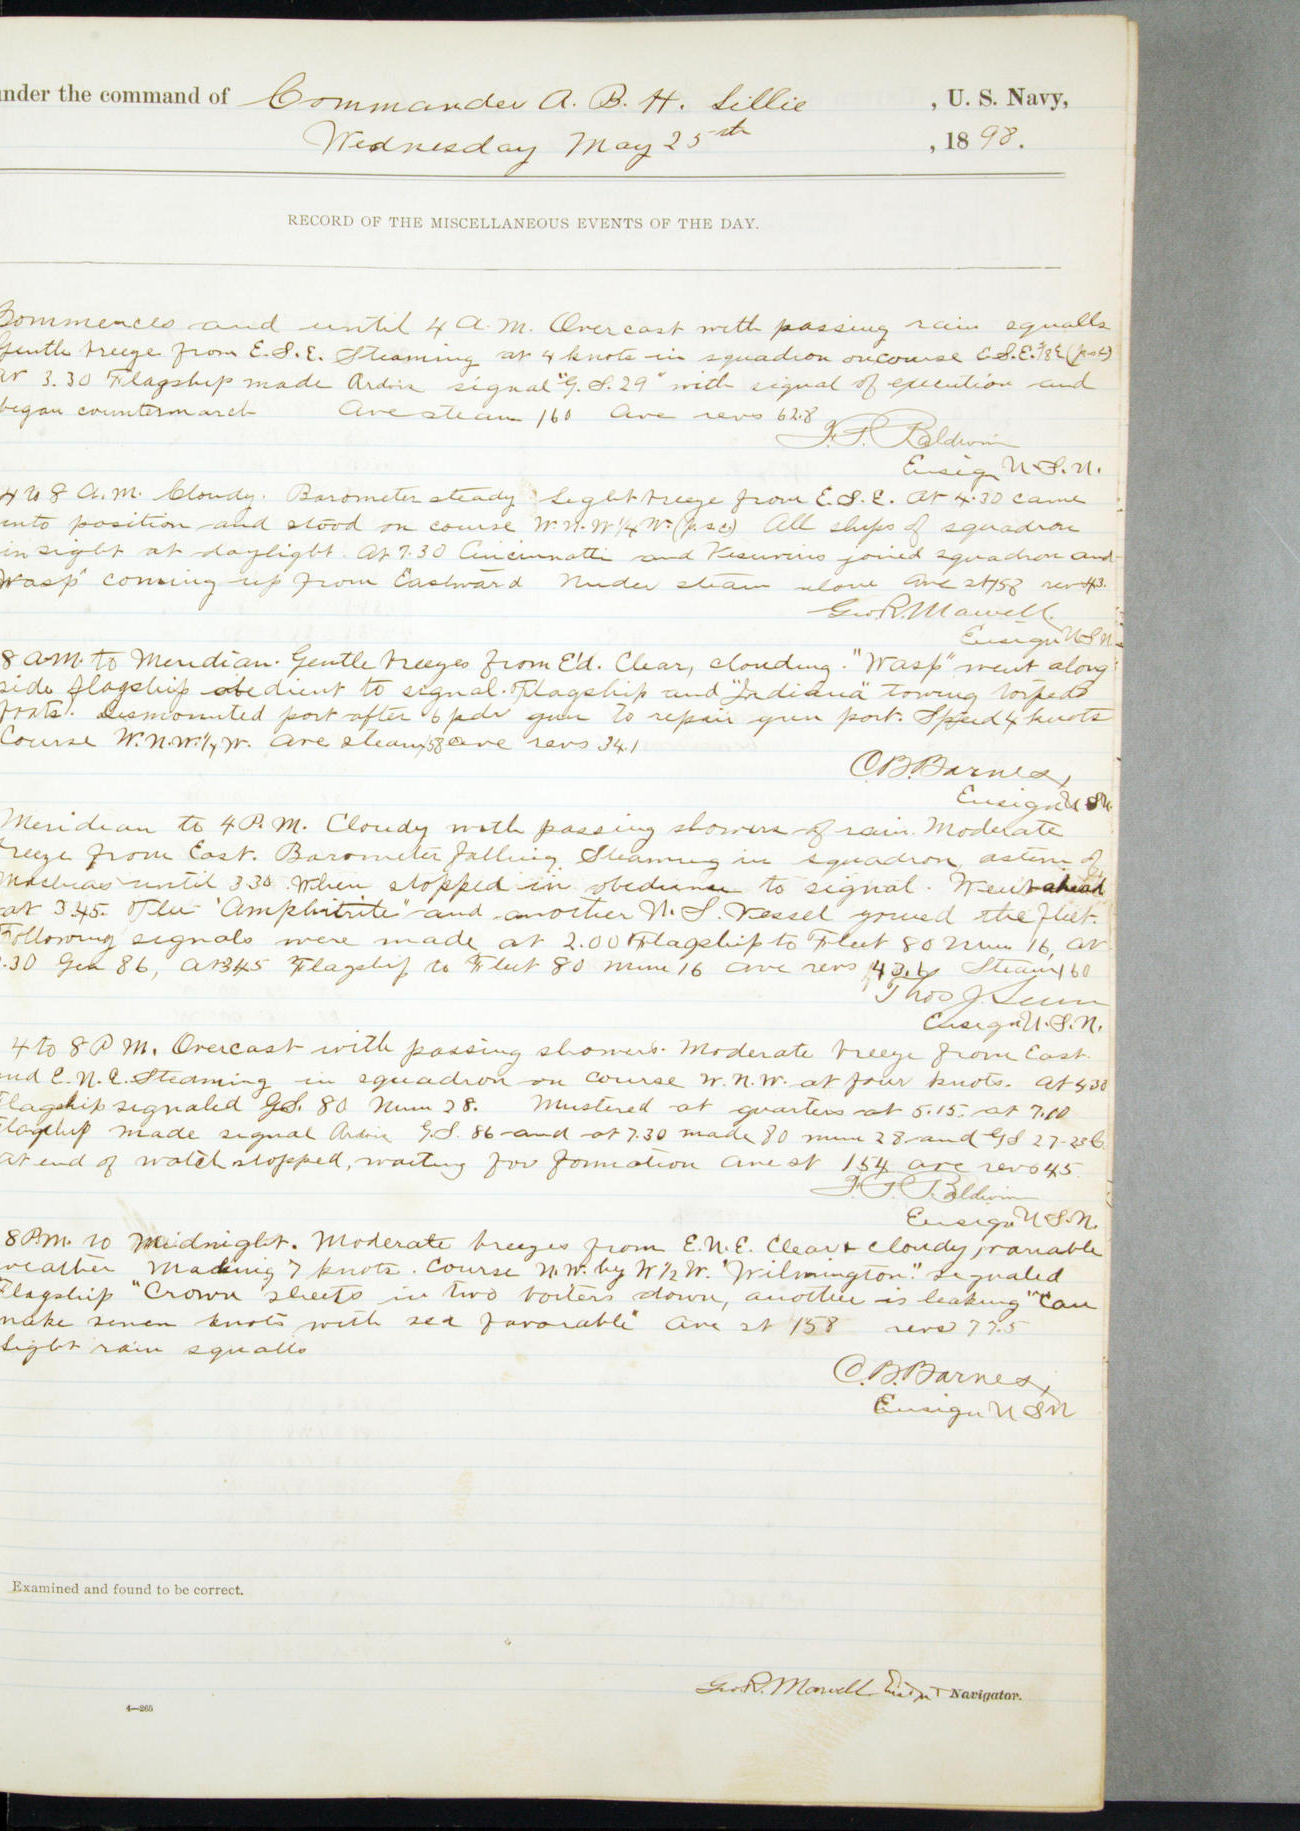 under the command of Commander A. B. H. Lillie, U. S. Navy,
Wednesday May 25th, 1898.
RECORD OF THE MISCELLANEOUS EVENTS OF THE DAY.
Commences and until 4 A.M. Overcast with passing rain squalls
Gentle breeze from E.S.E. Steaming at 4 knots in squadron on course E.S.E. 3/8 E (psc)
At 3.30 Flagship made Ardois signal "G.S. 29" with signal of execution and
began countermarch Ave steam 160 Ave revs 62.8
F. P. Baldwin
Ensign U.S.N.
4 to 8 A.M. Cloudy. Barometer steady. Light breeze from E.S.E. At 4.30 came
into position and stood on course W.N.W 1/4 W. (p.s.c.) All ships of squadron
in sight at daylight. At 7.30 Cincinnatti and Vesuvius joined squadron and
"Wasp" coming up from Eastward Under steam alone Ave st 158 revs 43.
Geo R. Marvell.
Ensign U.S.N.
8 A.M. to Meridian. Gentle breezes from E'd. Clear, clouding. "Wasp" went along
side flagship obedient to signal. Flagship and "Indiana" towing torpedo
boats. Dismounted port after 6 pdr gun to repair gun port. Speed 4 knots
Course W.N.W. 1/4 W. Ave steam 158 ave revs 34.1
C.B. Barnes,
Ensign U.S.N.
Meridian to 4 P.M. Cloudy with passing showers of rain. Moderate
breeze from East. Barometer falling. Steaming in squadron, astern of
Machias until 3.30 when stopped in obedience to signal. Went ahead
at 3.45. The "Amphitrite" and another U.S. vessel joined the fleet.
Following signals were made, at 2.00 Flagship to Fleet 80 Num 16, at
.30 Gen 86, at 3.45 Flagship to Fleet 80 num 16 ave revs 43.6 Steam 160
Thos J. Senn
Ensign U.S.N.
4 to 8 P.M. Overcast with passing showers. Moderate breeze from East
and E.N.E. Steaming in squadron on course W.N.W. at four knots. At 4.30
Flagship signaled G.S. 80 Num 28. Mustered at quarters at 5.15. at 7.10
flagship made signal Ardois G.S. 86 and at 7.30 made 80 num 28 and GS 27-
At end of watch stopped, waiting for formation Ave st 154 ave revs 45.
F. P. Baldwin
Ensign U.S.N.
8 P.M. to Midnight. Moderate breezes from E.N.E. Clear & cloudy, variable
weather Making 7 knots. Course N.W. by W 1/2 W. "Wilmington" signaled
Flagship "Crown sheets in two boilers down, another is leaking" "Can
make seven knots with sea favorable" Ave st 158 revs 77.5
Light rain squalls
C.B. Barnes,
Ensign U.S.N
Examined and found to be correct.
Geo R. Marvell Ensign Navigator.
4—265